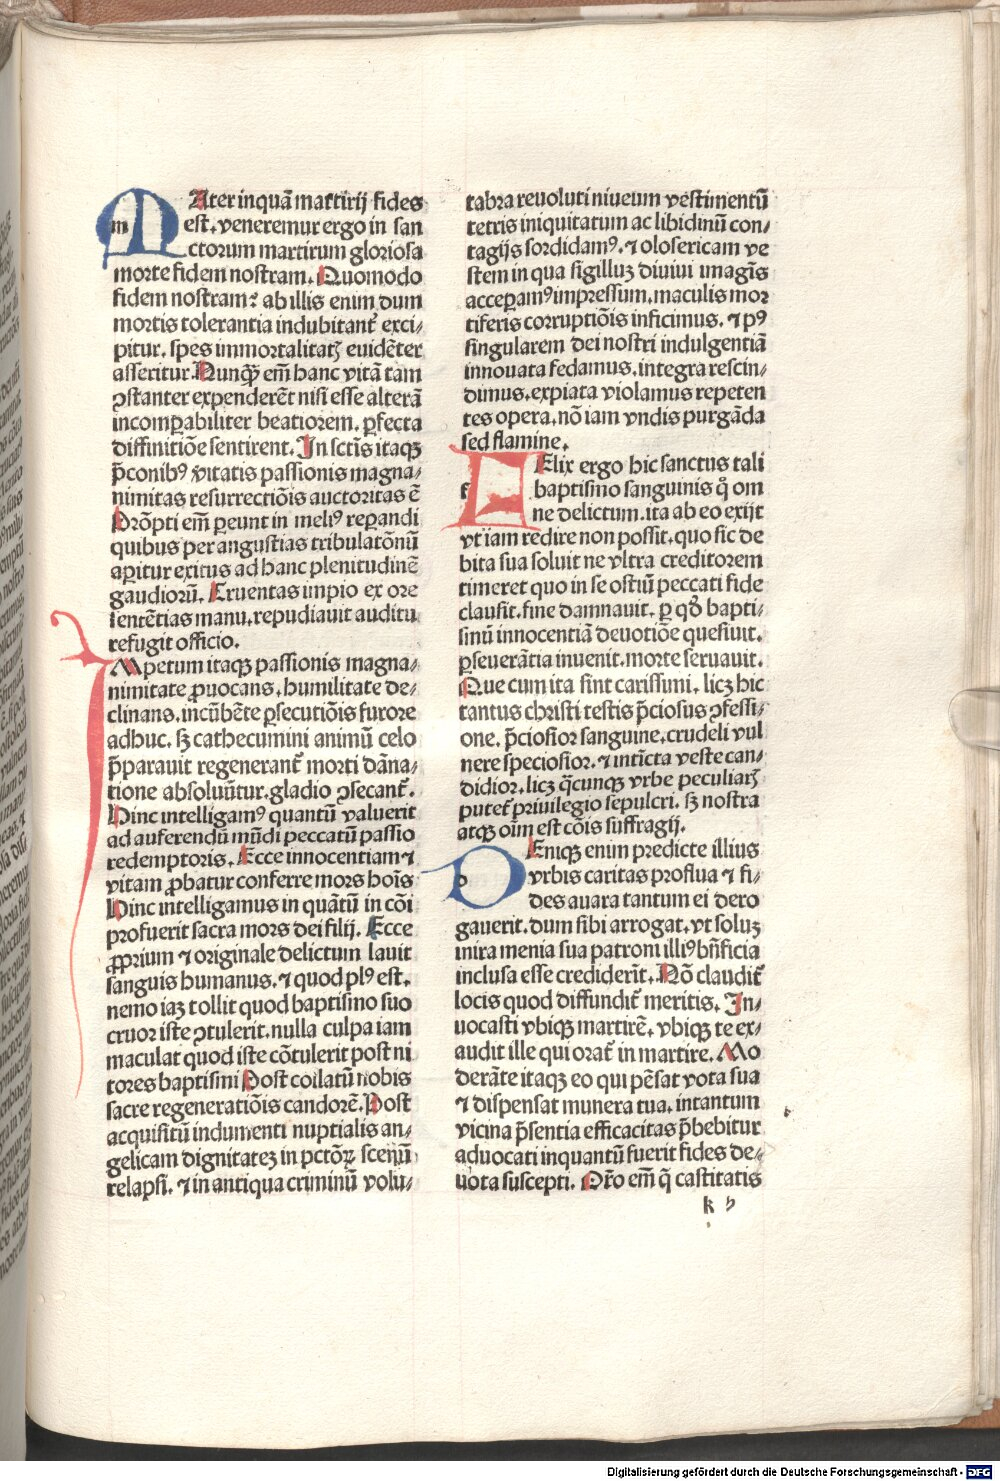 MAter inquā martirij fides
est. veneremur ergo in san
ctorum martirum gloriosa
morte fidem nostram. Quomodo
fidem nostram? ab illis enim dum
mortis tolerantia indubitant᷑ exci/
pitur. spes immortalitatꝫ euidēter
asseritur Nunqꝫ̄ em̄ hanc vitā tam
ꝯstanter expenderēt nisi esse alterā
incompabiliter beatiorem. ꝑfecta
diffinitiōe sentirent. In sctīs itaqꝫ
p̄conibꝰ v̓itatis passionis magna/
nimitas resurrectiōis auctoritas ē
Prōpti em̄ ꝑeunt in meliꝰ reꝑandi
quibus per angustias tribulatōnū
aꝑitur exitus ad hanc plenitudinē
gaudiorū. Eruentas impio ex ore
sentētias manu. repudiauit auditu
refugit officio.
IMpetum itaqꝫ passionis magna/
nimitate ꝓuocans. humilitate de/
clinans. incūbēte ꝑsecutiōis furore
adhuc. sꝫ cathecumini animū celo
p̄parauit regenerant᷑ morti dāna/
tione absoluūtur. gladio ꝯsecant᷑.
Hinc intelligamꝰ quantū valuerit
ad auferendū mūdi peccatū passio
redemptoris. Ecce innocentiam ⁊
vitam ꝓbatur conferre mors hoīs
Hinc intelligamus in quātū in cōi
profuerit sacra mors dei filij. Ecce
ꝓprium ⁊ originale delictum lauit
sanguis humanus. ⁊ quod plꝰ est.
nemo iaꝫ tollit quod baptismo suo
cruor iste ꝯtulerit. nulla culpa iam
maculat quod iste cōtulerit post ni
tores baptismi Post coilatū nobis
sacre regeneratiōis candorē. Post
acquisitū indumenti nuptialis an/
gelicam dignitateꝫ in pctōꝝ scenū
relapsi. ⁊ in antiqua criminū volu/
tabra reuoluti niueum vestimentū
tetris iniquitatum ac libidinū con/
tagijs sordidamꝰ. ⁊ olosericam ve
stem in qua sigilluꝫ diuini imagīs
acceꝑamꝰ impressum. maculis mor
tiferis corruptiōis inficimus. ⁊ pꝰ
singularem dei nostri indulgentiā
innouata fedamus. integra rescin/
dimus. expiata violamus repeten
tes opera. nō iam vndis purgāda
sed flamine.
FElix ergo hic sanctus tali
baptismo sanguinis q̊ om
ne delictum. ita ab eo exijt
vt iam redire non possit. quo sic de
bita sua soluit ne vltra creditorem
timeret quo in se ostiū peccati fide
clausit. fine damnauit. ꝑ qđ bapti/
smū innocentiā deuotiōe quesiuit.
ꝑseuerātia inuenit. morte seruauit.
Que cum ita sint carissimi. licꝫ hic
tantus christi testis p̄ciosus ꝯfessi/
one. p̄ciosior sanguine. crudeli vul
nere speciosior. ⁊ intīcta veste can/
didior. licꝫ q̄cunqꝫ vrbe peculiarꝫ
putet᷑ priuilegio sepulcri. sꝫ nostra
atqꝫ oīm est cōis suffragij.
DEniqꝫ enim predicte illius
vrbis caritas proflua ⁊ fi/
des auara tantum ei dero
gauerit. dum sibi arrogat. vt soluꝫ
intra menia sua patroni illiꝰ bn̄ficia
inclusa esse crediderīt. Nō claudit᷑
locis quod diffundit᷑ meritis. In/
uocasti vbiqꝫ martirē. vbiqꝫ te ex/
audit ille qui orat᷑ in martire. Mo
derāte itaqꝫ eo qui pēsat vota sua
⁊ dispensat munera tua. intantum
vicina p̄sentia efficacitas p̄hebitur
aduocati inquantū fuerit fides de/
uota suscepti. Oro em̄ q̄ castitatis
k 5
Digitalisierung gefördert durch die Deutsche Forschungsgemeinschaft - DFG